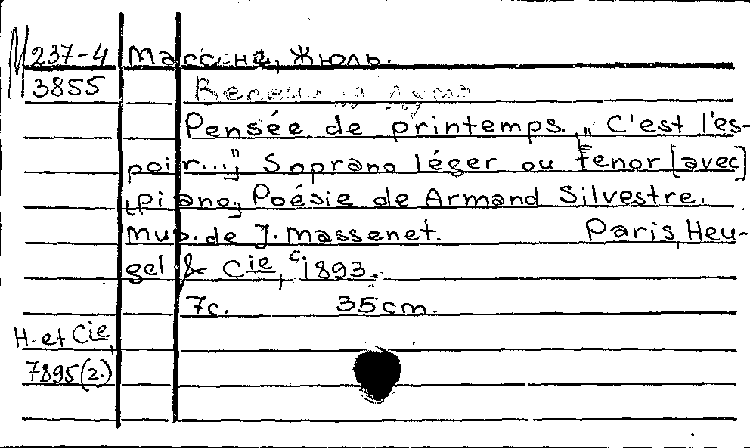 М 237-4 Массне, Жюль.
3855
Pensée de printemps. „C'est l'es-
poir..." Soprano léger ou tenor [avec]
[piano] Poésie de Armand Silvestre.
Mus. de J. Massenet. Paris, Heu-
gel & Cie, c1893.
7c. 35cm.
H. et Cie
7895(2.)